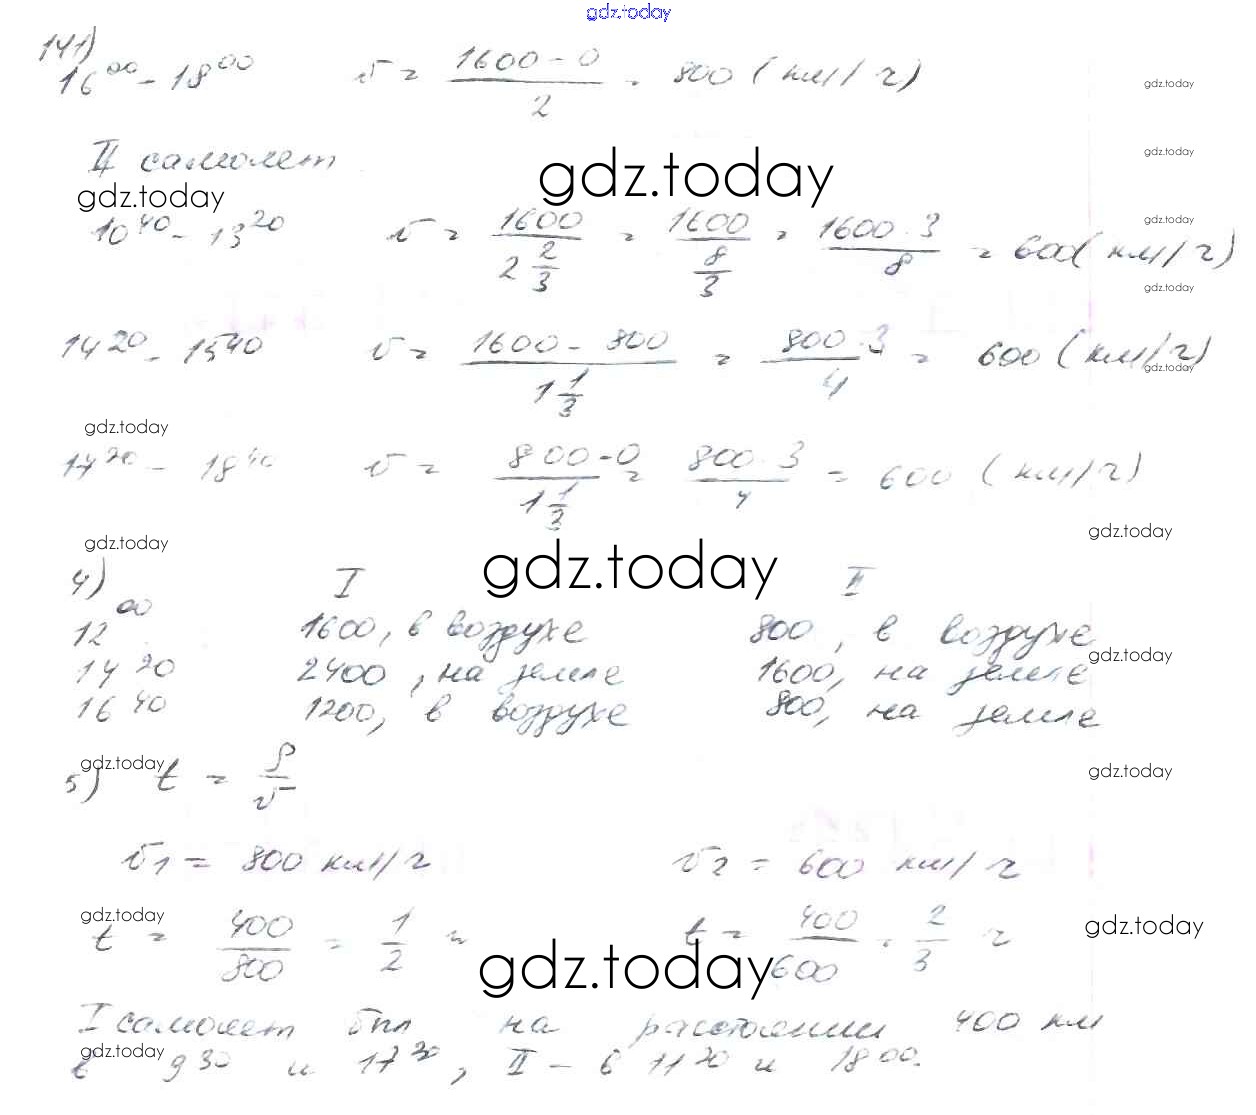 gdz.today
141)
16⁰⁰ - 18⁰⁰ v = (1600 - 0)/2 = 800 (км/ч)
gdz.today
II самолет
gdz.today
gdz.today
gdz.today
gdz.today
10⁴⁰ - 13²⁰ v = 1600/(2 2/3) = 1600/(8/3) = (1600·3)/8 = 600 (км/ч)
gdz.today
14²⁰ - 15⁴⁰ v = (1600 - 800)/(1 1/3) = (800·3)/4 = 600 (км/ч)
gdz.today
gdz.today
17²⁰ - 18⁴⁰ v = (800 - 0)/(1 1/3) = (800·3)/4 = 600 (км/ч)
gdz.today
gdz.today
gdz.today
4) I II
12⁰⁰ 1600, в воздухе 800, в воздухе
gdz.today
14²⁰ 2400, на земле 1600, на земле
16⁴⁰ 1200, в воздухе 800, на земле
gdz.today
gdz.today
5) t = S/v
v1 = 800 км/ч v2 = 600 км/ч
gdz.today
gdz.today
t = 400/800 = 1/2 ч t = 400/600 = 2/3 ч
gdz.today
I самолет был на расстоянии 400 км
gdz.today
в 9³⁰ и 17³⁰, II - в 11²⁰ и 18⁰⁰.